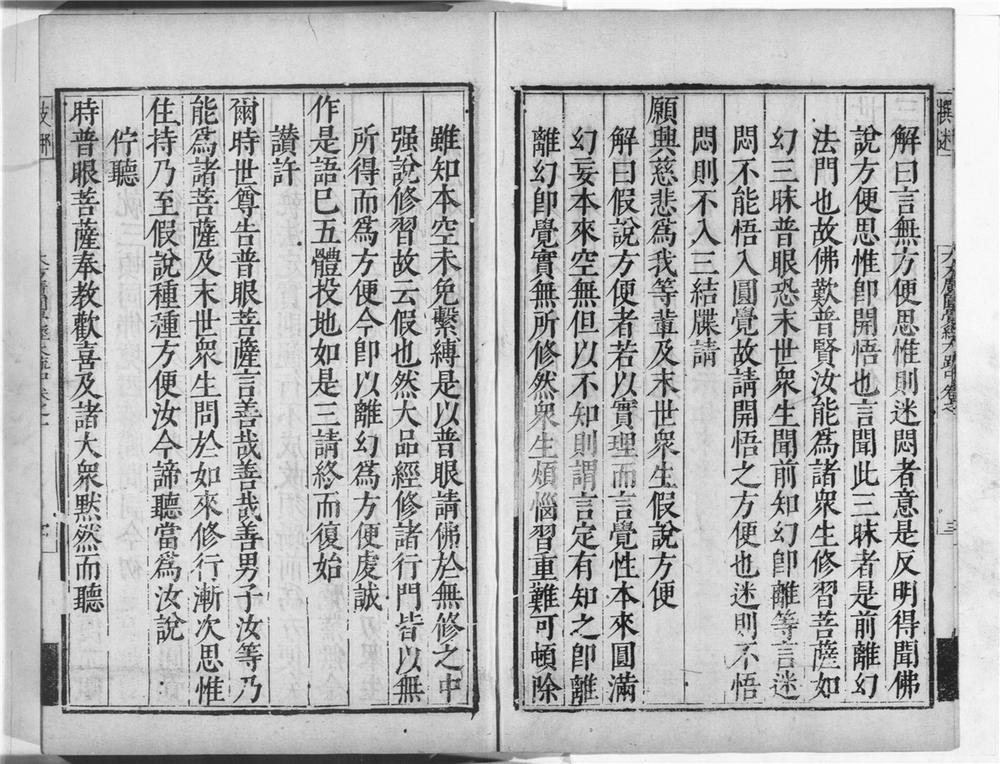 解曰言無方便思惟則迷悶者意是反明得聞佛
說方便思惟卽開悟也言聞此三昧者是前離幻
法門也故佛歎普賢汝能爲諸衆生修習菩薩如
幻三昧普眼恐末世衆生聞前知幻卽離等言迷
悶不能悟入圓覺故請開悟之方便也迷則不悟
悶則不入三結牒請
願興慈悲爲我等輩及末世衆生假說方便
解曰假說方便者若以實理而言覺性本來圓滿
幻妄本來空無但以不知則謂言定有知之卽離
離幻卽覺實無所修然衆生煩惱習重難可頓除
雖知本空未免繫縛是以普眼請佛於無修之中
强說修習故云假也然大品經修諸行門皆以無
所得而爲方便今卽以離幻爲方便䖍誠
作是語已五體投地如是三請終而復始
讃許
爾時世尊告普眼菩薩言善哉善哉善男子汝等乃
能爲諸菩薩及末世衆生問於如來修行漸次思惟
住持乃至假說種種方便汝今諦聽當爲汝說
佇聽
時普眼菩薩奉教歡喜及諸大衆默然而聽